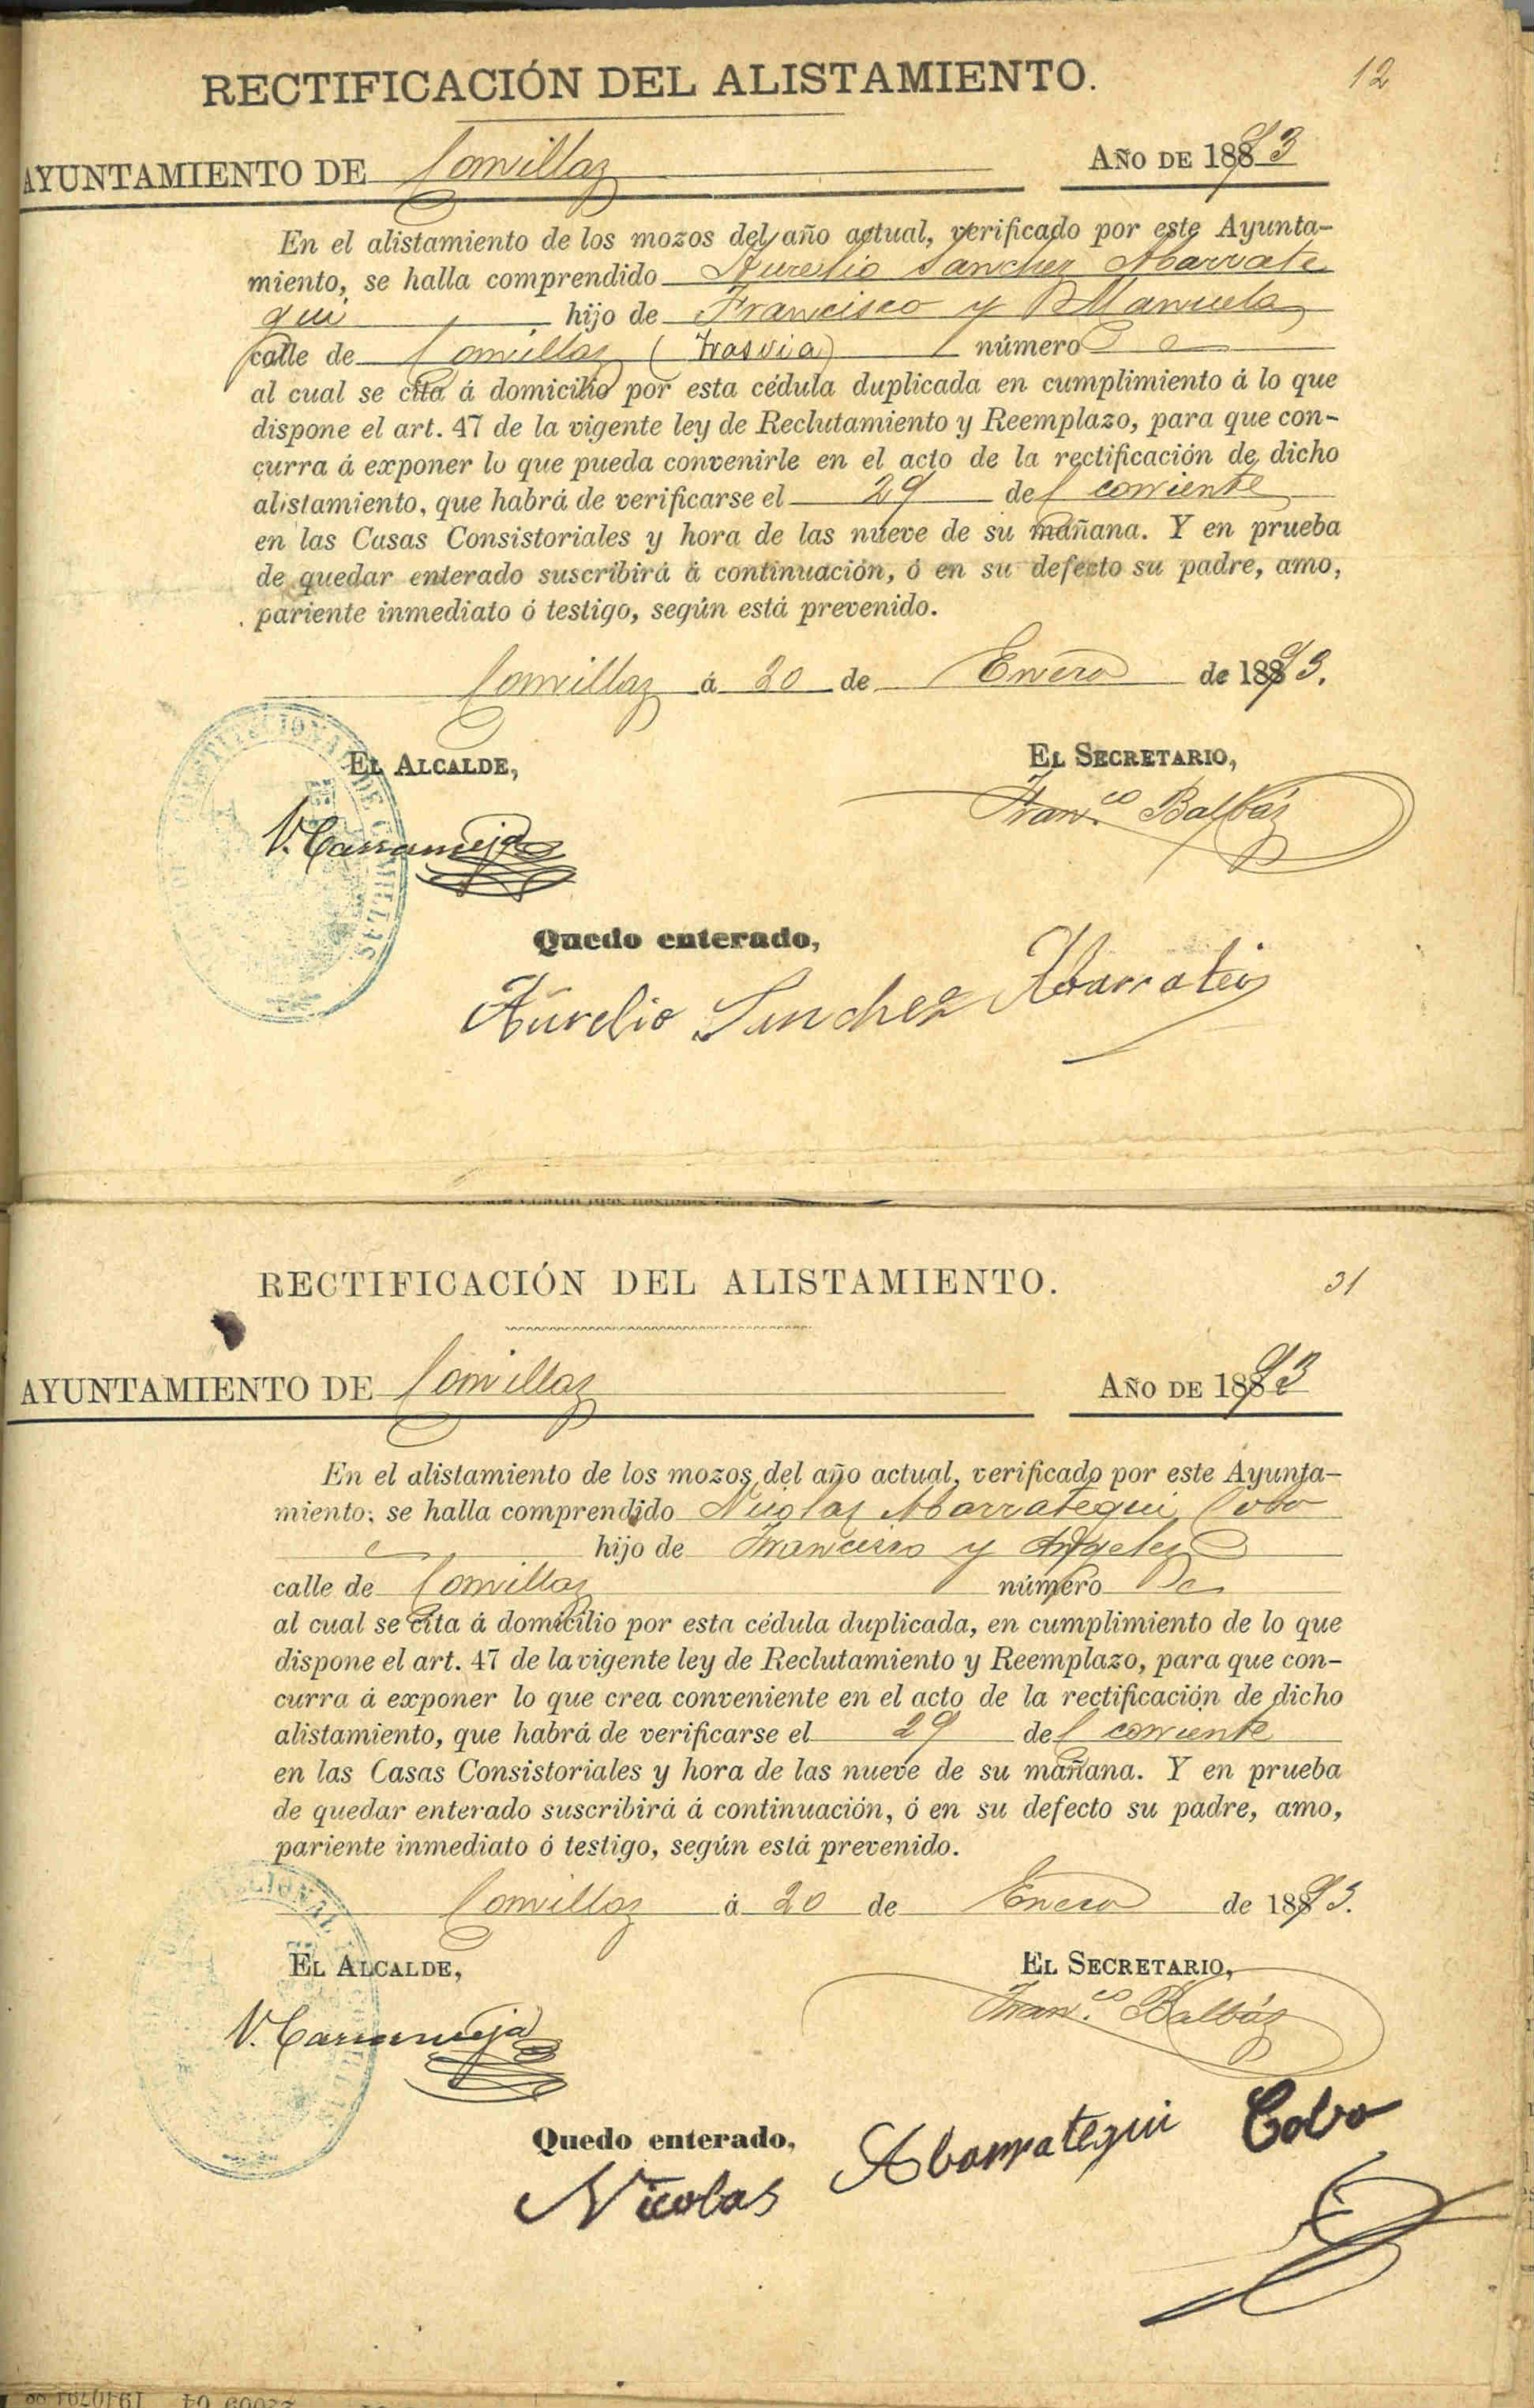 RECTIFICACIÓN DEL ALISTAMIENTO.
12
AYUNTAMIENTO DE Comillas AÑO DE 1893
En el alistamiento de los mozos del año actual, verificado por este Ayunta-
miento, se halla comprendido Aurelio Sanchez Abarrate
gui hijo de Francisco y Manuela
calle de Comillas (Trasvia) número
al cual se cita á domicilio por esta cédula duplicada en cumplimiento á lo que
dispone el art. 47 de la vigente ley de Reclutamiento y Reemplazo, para que con-
curra á exponer lo que pueda convenirle en el acto de la rectificación de dicho
alistamiento, que habrá de verificarse el 29 del corriente
en las Casas Consistoriales y hora de las nueve de su mañana. Y en prueba
de quedar enterado suscribirá á continuación, ó en su defecto su padre, amo,
pariente inmediato ó testigo, según está prevenido.
Comillas á 20 de Enero de 1893.
EL ALCALDE, EL SECRETARIO,
Fran.co Balbás
Quedo enterado,
Aurelio Sanchez Abarrategui
RECTIFICACIÓN DEL ALISTAMIENTO.
31
AYUNTAMIENTO DE Comillas AÑO DE 1893
En el alistamiento de los mozos del año actual, verificado por este Ayunta-
miento; se halla comprendido Nicolas Abarrategui Cobo
hijo de Francisco y Angeles
calle de Comillas número
al cual se cita á domicilio por esta cédula duplicada, en cumplimiento de lo que
dispone el art. 47 de la vigente ley de Reclutamiento y Reemplazo, para que con-
curra á exponer lo que crea conveniente en el acto de la rectificación de dicho
alistamiento, que habrá de verificarse el 29 del corriente
en las Casas Consistoriales y hora de las nueve de su mañana. Y en prueba
de quedar enterado suscribirá á continuación, ó en su defecto su padre, amo,
pariente inmediato ó testigo, según está prevenido.
Comillas á 20 de Enero de 1893.
EL ALCALDE, EL SECRETARIO,
Fran.co Balbás
Quedo enterado,
Nicolas Abarrategui Cobo